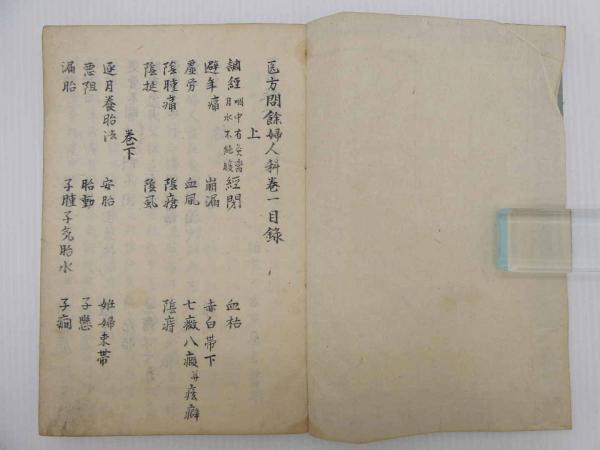 医方問餘婦人科巻一目録
上
調経 咽中有炙臠 月水不絶 經閉 血枯
避年痛 崩漏 赤白帯下
虚労 血風 七癥八瘕并痃癖
陰腫痛 陰瘡 陰痔
陰挺 陰虱
巻下
逐月養胎法 安胎 姙婦束帯
悪阻 胎動 子懸
漏胎 子腫子気胎水 子癇